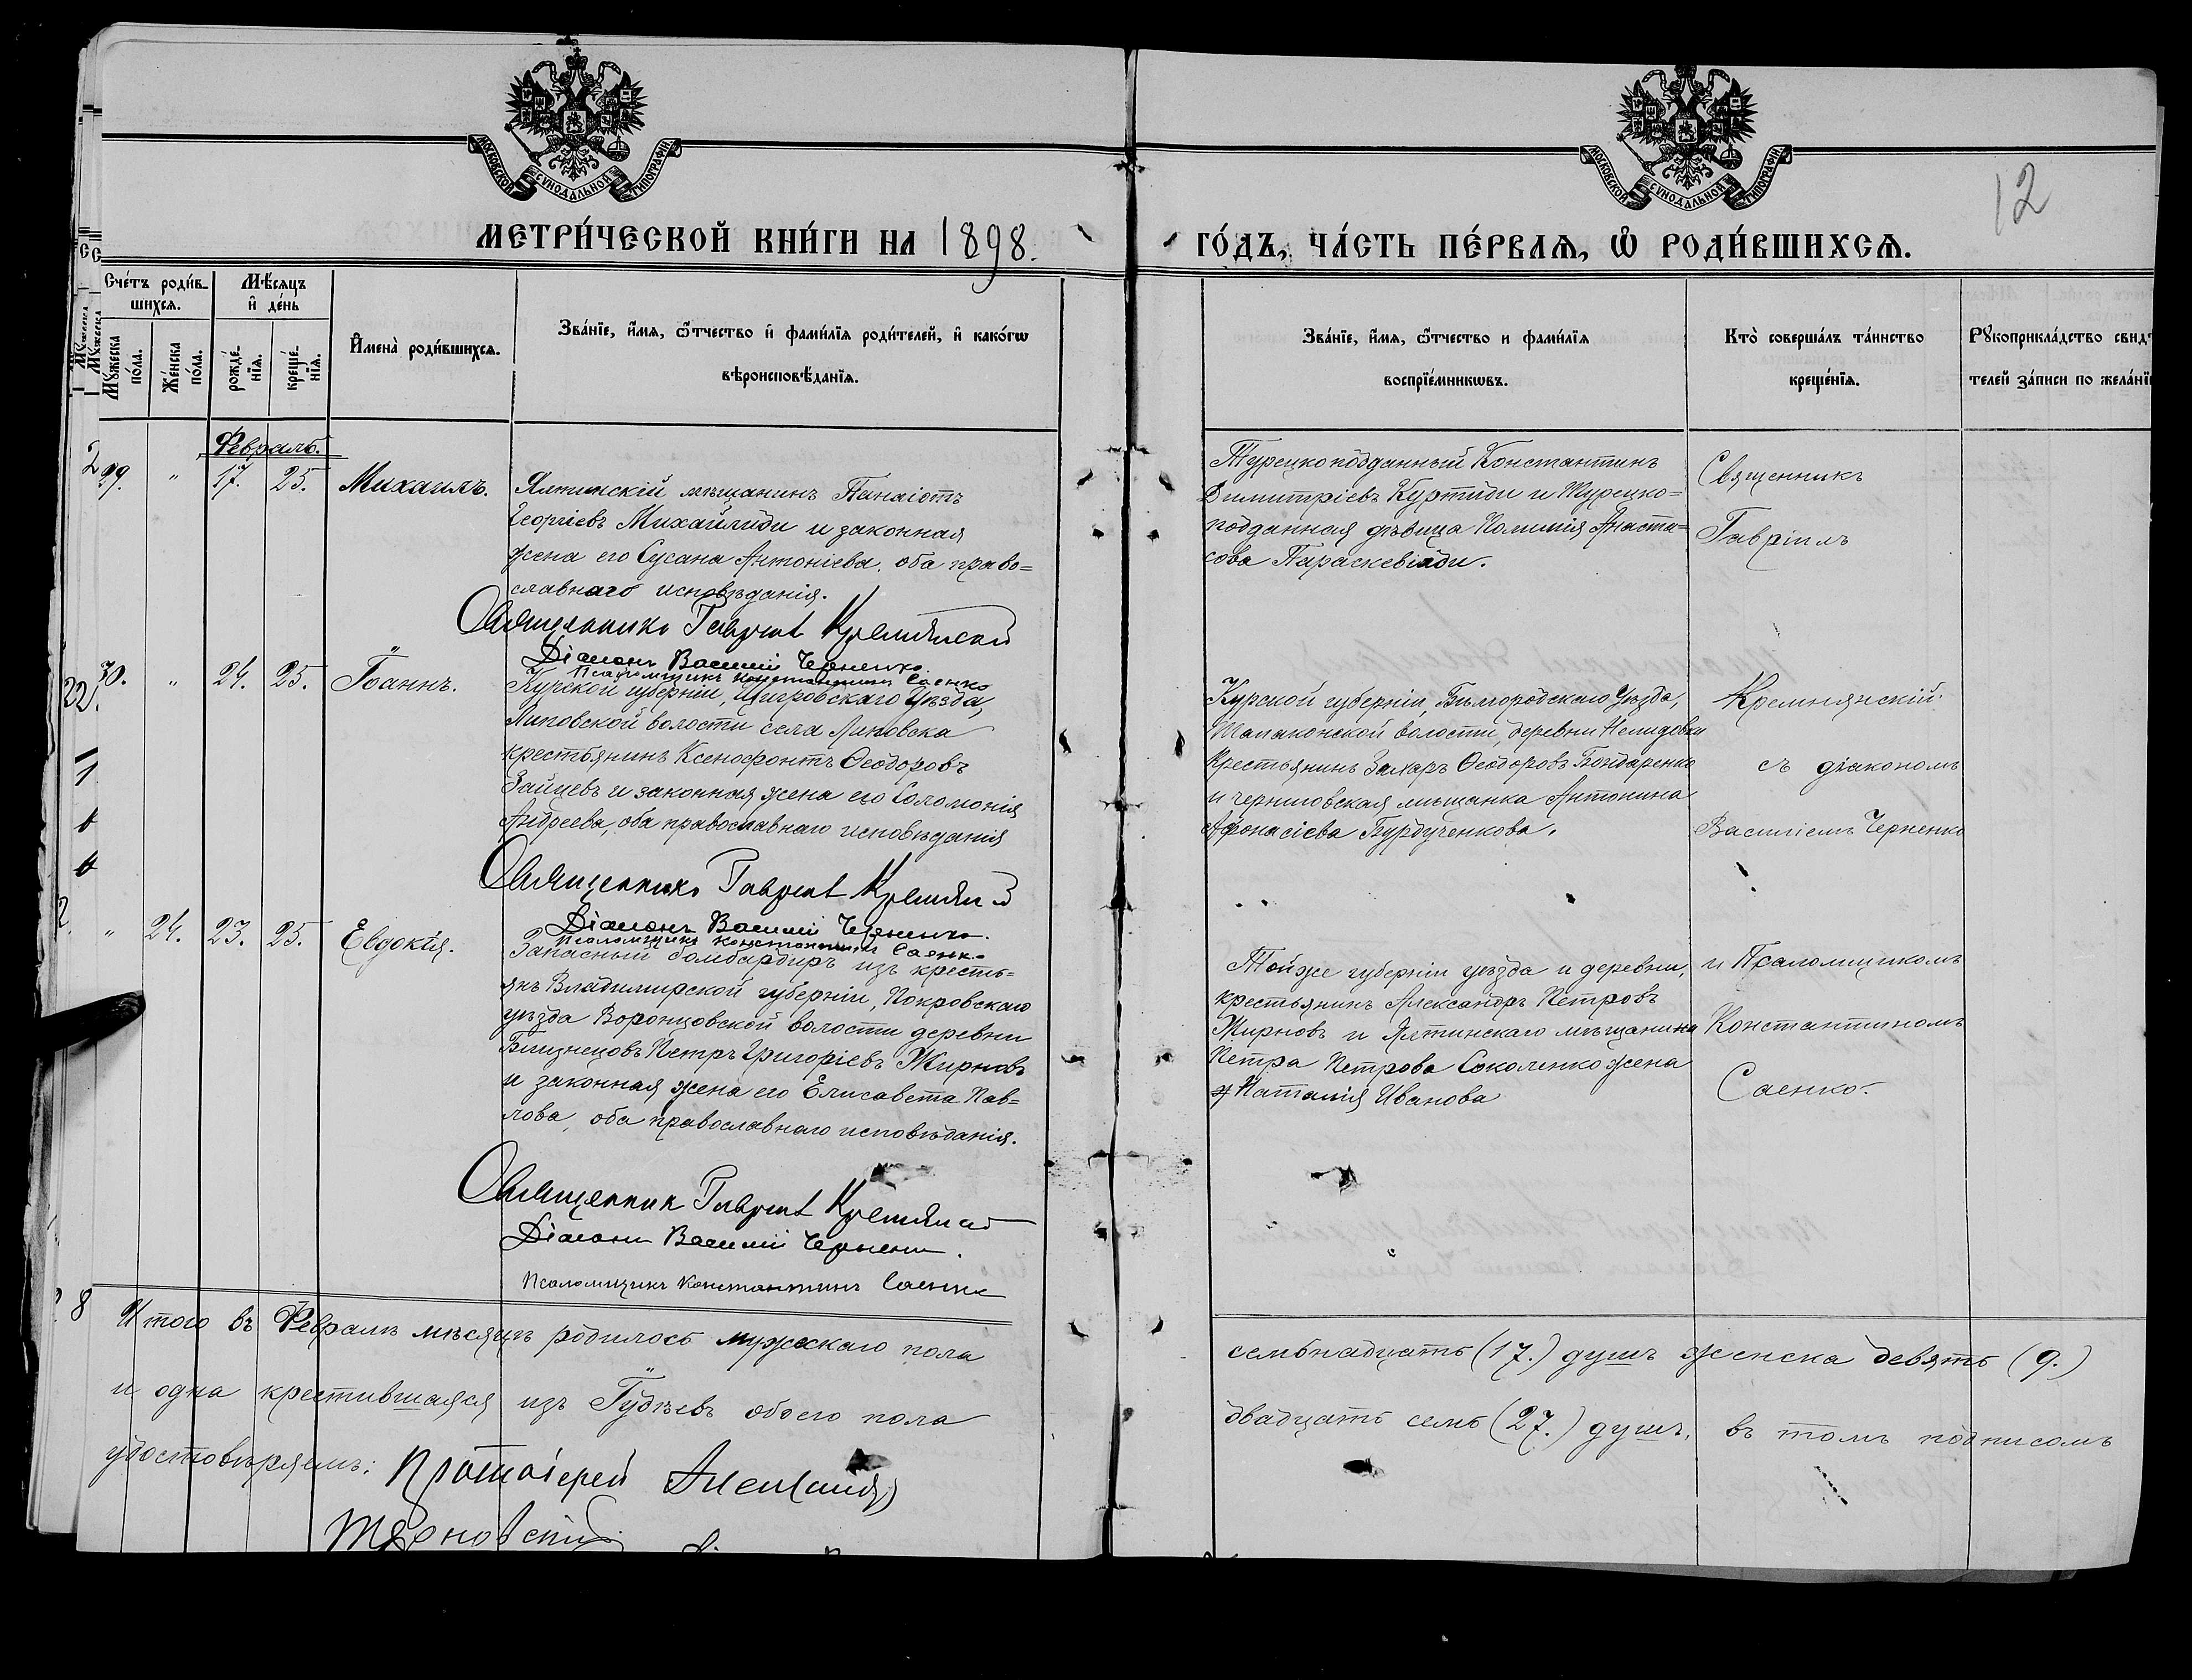 МОСКОВСКОЙ СѴНОДАЛЬНОЙ ТИПОГРАФІИ
МОСКОВСКОЙ СѴНОДАЛЬНОЙ ТИПОГРАФІИ
12
МЕТРИ́ЧЕСКОЙ КНИ́ГИ НА 1898.
ГО́ДЪ, ЧА́СТЬ ПЕ́РВАЯ, Ѡ РОДИ́ВШИХСЯ.
Сче́тъ роди́в-
шихся.
Мꙋжеска
по́ла.
Же́нска
по́ла.
Мѣ́сяцъ
и҆ де́нь
рожде́-
нїя.
креще́-
нїя.
И҆мена̀ роди́вшихся.
Зва́нїе, и҆́мя, ѻ҆́тчество и҆ фами́лїя роди́телей, и҆ како́гѡ
вѣроисповѣ́данїя.
Зва́нїе, и҆́мя, ѻ҆́тчество и фами́лїя
воспрїе́мникѡвъ.
Кто̀ соверша́лъ та́инство
креще́нїя.
Рꙋкоприкла́дство свид
телей за́писи по жела́нї
Февраль.
29. " 17. 25. Михаилъ.
Ялтинскій мѣщанинъ Панаіотъ
Георгіевъ Михайлиди и законная
жена его Сусана Антоніева, оба право=
славнаго исповѣданія.
Священникъ Гавріилъ Кремнянскій
Діаконъ Василій Черненко
Псаломщикъ Константинъ Саенко
Турецкоподданный Константинъ
Димитріевъ Куртиди и Турецко=
подданная дѣвица Анаста=
сова Параскевіади.
Священникъ
Гавріилъ
30. " 24. 25. Іоаннъ.
Курской губерніи, Щигровскаго Уѣзда,
Липовской волости села Липовска
крестьянинъ Ксенофонтъ Ѳеодоровъ
Зайцевъ и законная жена его Соломонія
Андреева, оба православнаго исповѣданія
Священникъ Гавріилъ Кремнянскій
Діаконъ Василій Черненко.
Псаломщикъ Константинъ Саенко
Курской губерніи, Бѣлгородскаго Уѣзда,
волости, деревни Нелидовки
Крестьянинъ Захаръ Ѳеодоровъ Бондаренко
и черниговская мѣщанка Антонина
Афонасіева Бурдученкова.
Кремнянскій
съ діакономъ
Василіемъ Черненко
" 24. 23. 25. Евдокія.
Запасный бомбардиръ изъ кресть=
янъ Владимирской губерніи, Покровскаго
уѣзда Воронцовской волости деревни
Близнецовъ Петръ Григоріевъ Жирновъ
и законная жена его Елисавета Пав=
лова, оба православнаго исповѣданія.
Священникъ Гавріилъ Кремнянскій
Діаконъ Василій Черненко.
Псаломщикъ Константинъ Саенко
Той же губерніи уѣзда и деревни,
крестьянинъ Александръ Петровъ
Жирновъ и Ялтинскаго мѣщанина
Петра Петрова Соколенко жена
Наталія Иванова
и Псаломщикомъ
Константиномъ
Саенко.
Итого въ Февралѣ мѣсяцѣ родилось мужескаго пола
семьнадцать (17.) душъ женска девять (9.)
и одна крестившаяся изъ Іудѣевъ обоего пола
двадцать семь (27.) душъ, въ томъ подписомъ
удостовѣряемъ: Протоіерей Александръ
Терновскій